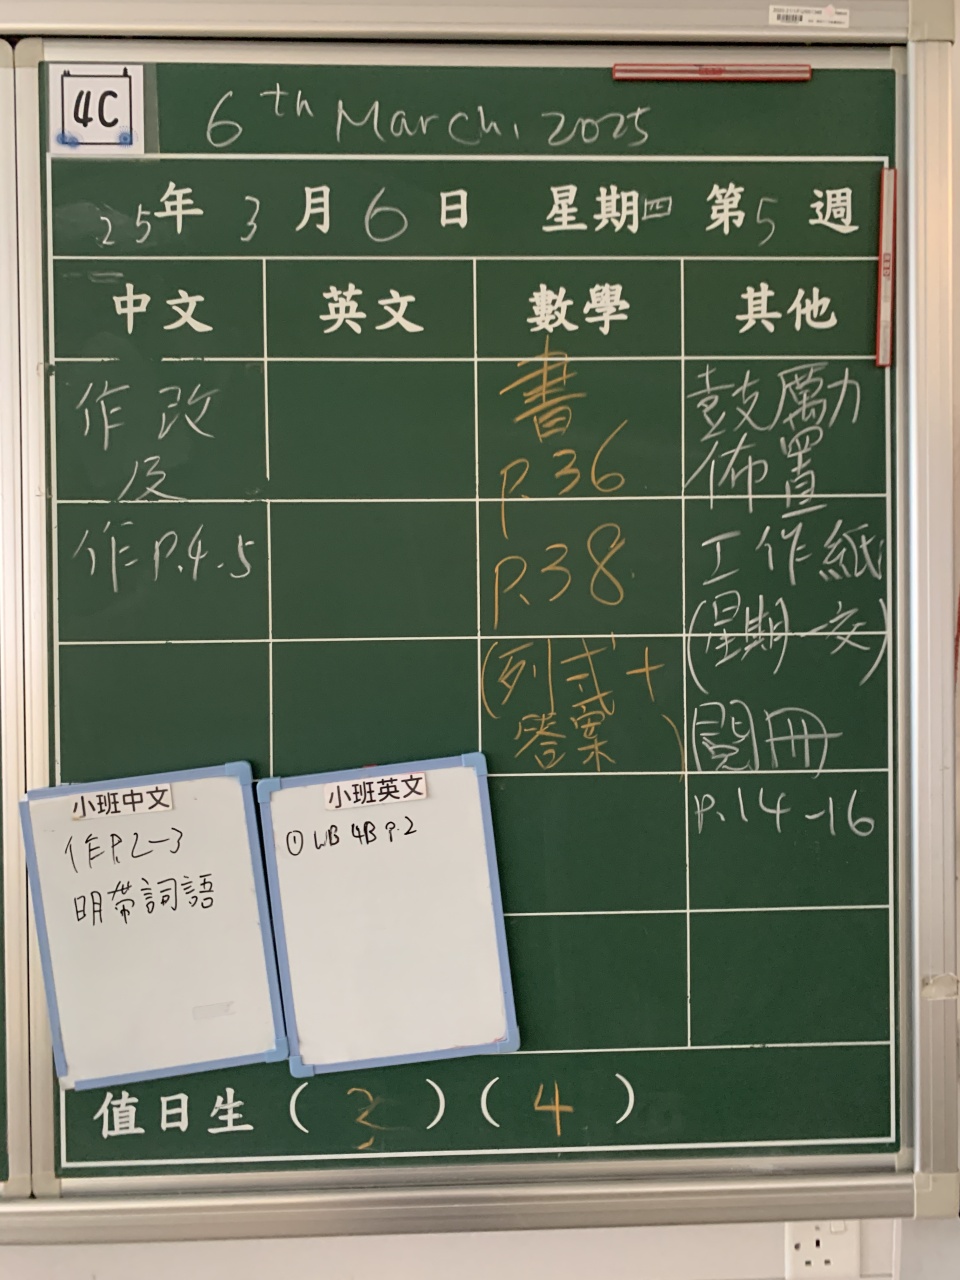 4C
6th March, 2025
25年 3月 6日 星期四 第5週
中文 英文 數學 其他
作改
及
作P.4.5
書
P.36
P.38
(列式+
答案)
鼓勵
佈置
工作紙
(星期一交)
閱冊
P.14-16
小班中文
作P.2-3
明帶詞語
小班英文
① WB 4B P.2
值日生 ( 3 ) ( 4 )